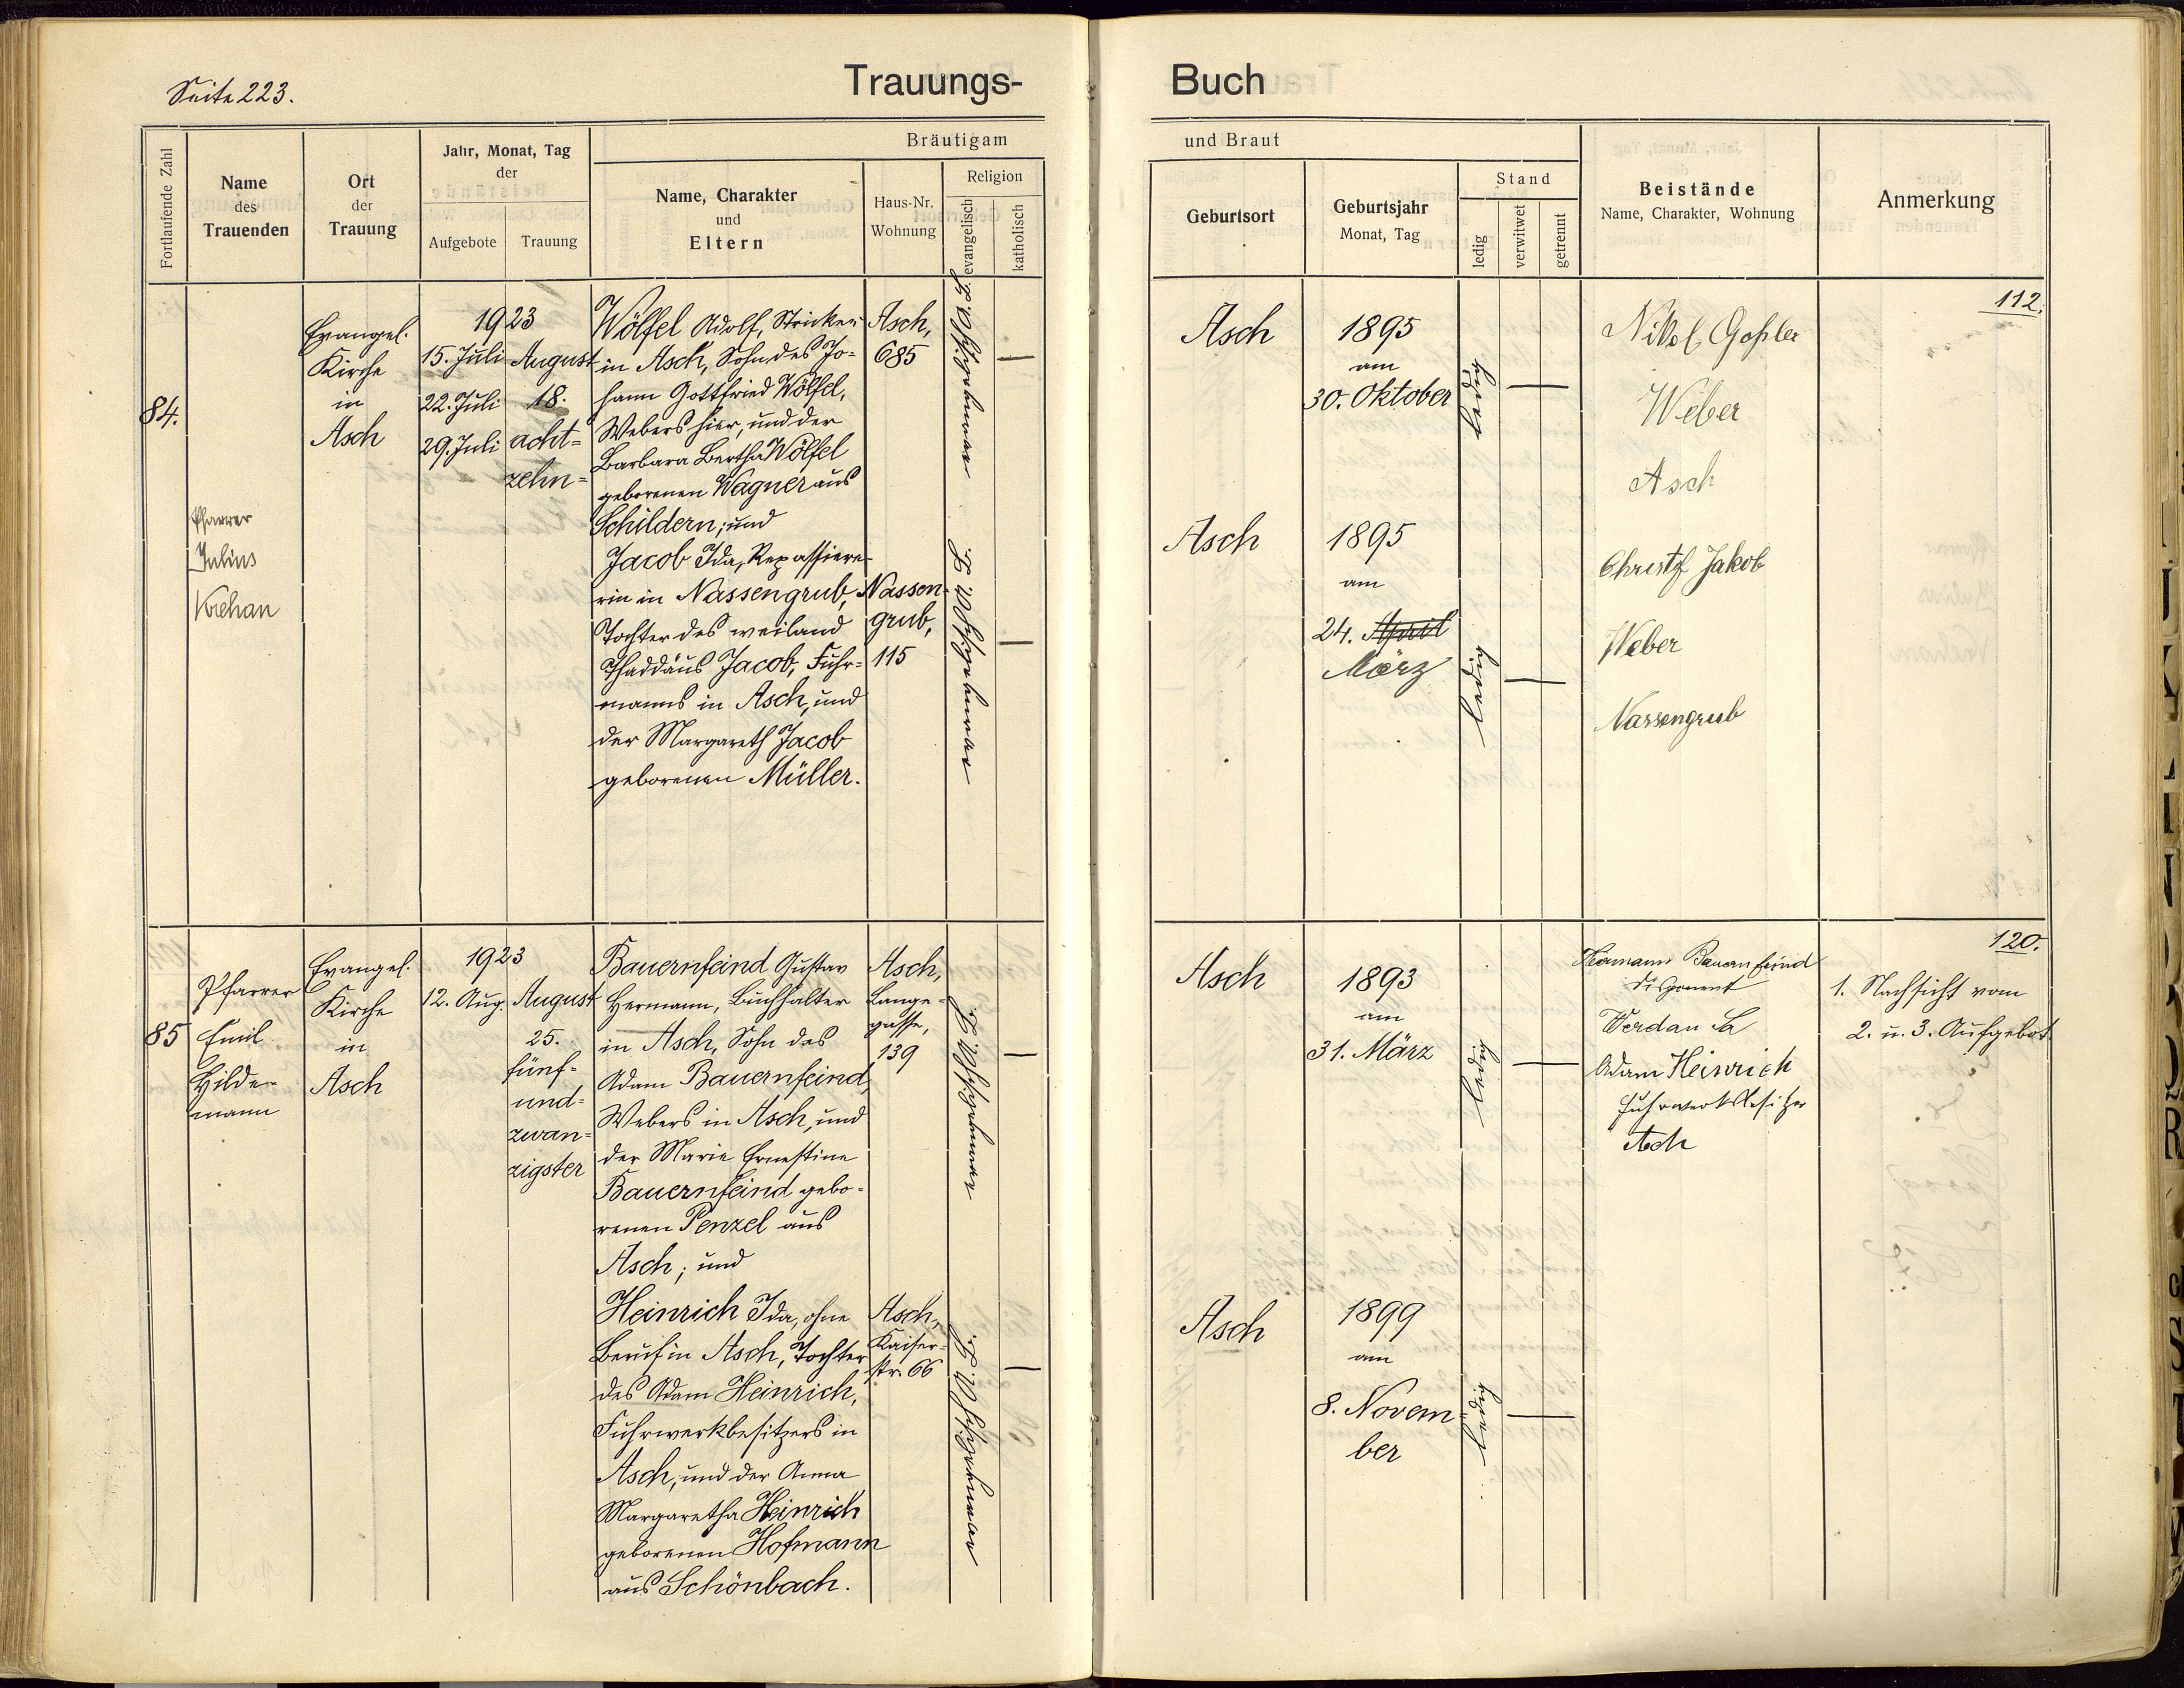 Seite 223.
Trauungs-
Fortlaufende Zahl
Name
des
Trauenden
Ort
der
Trauung
Jahr, Monat, Tag
der
Aufgebote
Trauung
Bräutigam
Name, Charakter
und
Eltern
Haus-Nr.
Wohnung
Religion
evangelisch
katholisch
84.
Pfarrer
Julius
Krehan
Evangel.
Kirche
in
Asch
1923
15. Juli
22. Juli
29. Juli
August
18.
acht=
zehn=
Wölfel Adolf, Stricker
in Asch, Sohn des Jo=
hann Gottfried Wölfel,
Webers hier, und der
Barbara Bertha Wölfel
geborenen Wagner aus
Schildern; und
Jacob Ida, Repassiere-
rin in Nassengrub,
Tochter des weiland
Thaddäus Jacob, Fuhr=
manns in Asch, und
der Margareth Jacob
geborenen Müller.
Asch,
685
Nassen-
grub,
115
85
Pfarrer
Emil
Hilde-
mann
Evangel.
Kirche
in
Asch
1923
12. Aug.
August
25.
fünf=
und=
zwan=
zigster
Bauernfeind Gustav
Hermann, Buchhalter
in Asch, Sohn des
Adam Bauernfeind,
Webers in Asch, und
der Marie Ernestine
Bauernfeind gebo=
renen Penzel aus
Asch; und
Heinrich Ida, ohne
Beruf in Asch, Tochter
des Adam Heinrich,
Fuhrwerkbesitzers in
Asch, und der Anna
Margaretha Heinrich
geborenen Hofmann
aus Schönbach.
Asch,
Lange=
gasse,
139
Asch,
Kaiser=
str. 66
Buch
und Braut
Geburtsort
Geburtsjahr
Monat, Tag
Stand
ledig
verwitwet
getrennt
Beistände
Name, Charakter, Wohnung
Anmerkung
112.
Asch
1895
am
30. Oktober
ledig
Nikol Goßler
Weber
Asch
Asch
1895
am
24. April
März
ledig
Christf Jakob
Weber
Nassengrub
120.
Asch
1893
am
31. März
ledig
Hermann Bauernfeind
Disponent
Werdau Sa
Adam Heinrich
Fuhrwerksbesitzer
Asch
1. Nachsicht vom
2. u. 3. Aufgebot
Asch
1899
am
8. Novem=
ber
ledig